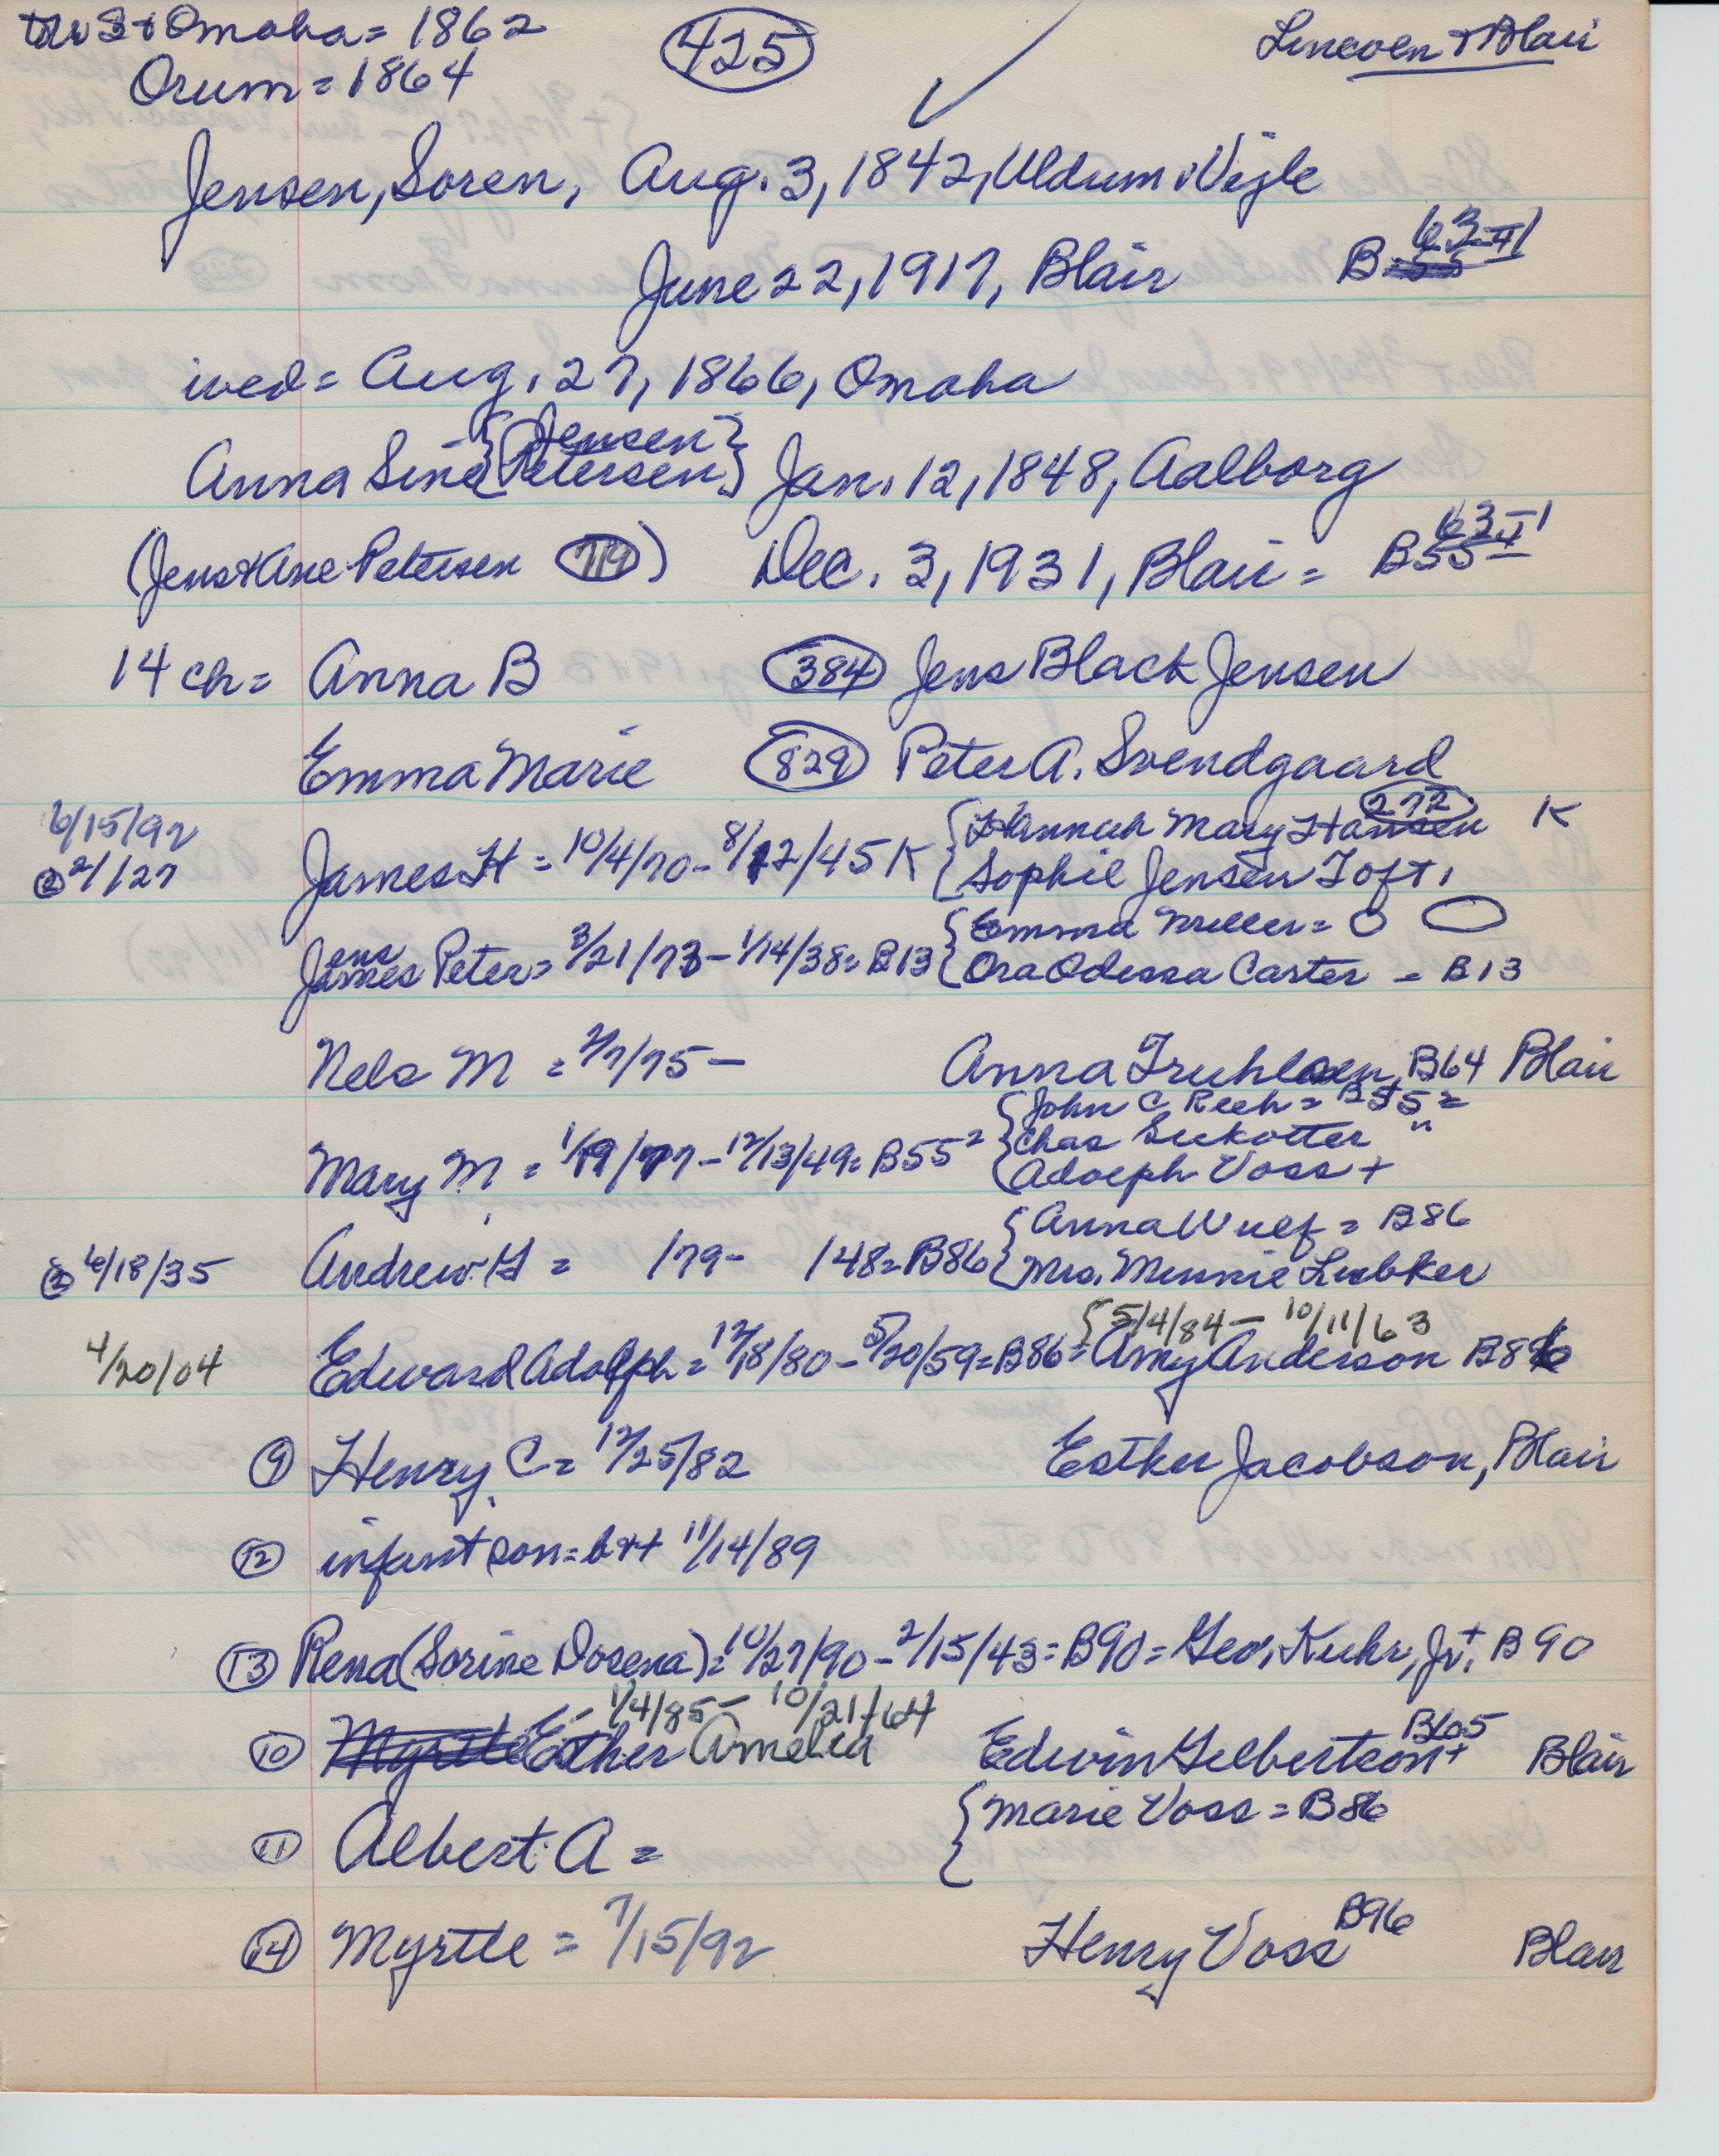 to US & Omaha = 1862
Orum = 1864
425
Lincoln & Blair
Jensen, Soren, Aug. 3, 1842, Uldum, Vejle
June 22, 1917, Blair B 63-II
wed = Aug. 27, 1866, Omaha
Anna Sine {Jensen} {Petersen} Jan. 12, 1848, Aalborg
(Jens & Ane Petersen 719) Dec. 3, 1931, Blair = B 63-II
14 ch = Anna B 384 Jens Black Jensen
Emma Marie 829 Peter A. Svendgaard
6/15/92 {Hannah Mary Hansen 272 K
② 2/1/27 James H = 10/4/70 - 8/12/45 K {Sophie Jensen Toft,
{Emma Miller = O
Jens Peter = 3/21/73 - 1/14/38 = B13 {Ora Odessa Carter = B13
Nels M = 2/7/75 - Anna Truhlsen, B64 Blair
{John C Reeh = B55 2
{Chas Siekotter "
Mary M = 1/19/77 - 12/13/49 = B55 2 {Adolph Voss +
{Anna Wulf = B86
② 6/18/35 Andrew G = /79 - /48 = B86 {Mrs. Minnie Lubker
{5/4/84 - 10/11/63
4/20/04 Edward Adolph = 12/18/80 - 5/20/59 = B86 = Amy Anderson B86
⑨ Henry C = 12/25/82 Esther Jacobson, Blair
⑫ infant son = b & + 11/14/89
⑬ Rena (Sorine Dosena) = 10/27/90 - 2/15/43 = B90 = Geo. Kuhr, Jr. + B90
1/4/85 - 10/21/64
⑩ Myrtle Esther Amelia Edwin Gilbertson + B65 Blair
{Marie Voss = B86
⑪ Albert A = {
⑭ Myrtle = 7/15/92 Henry Voss B96 Blair